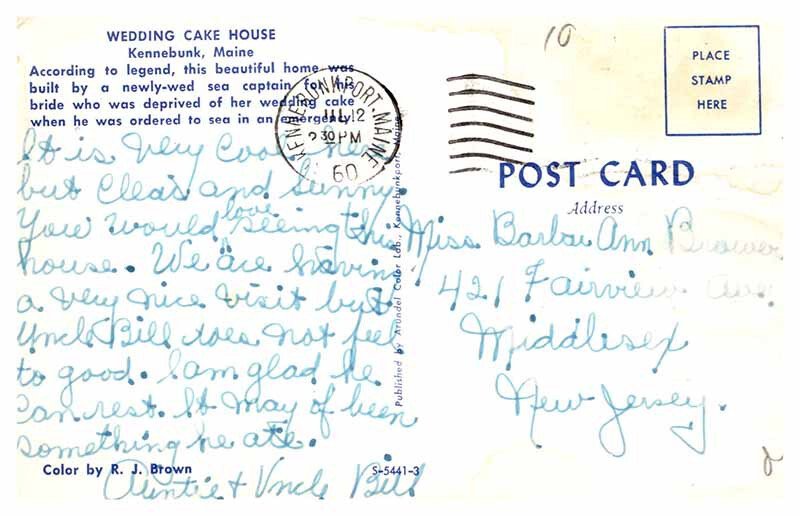 WEDDING CAKE HOUSE
Kennebunk, Maine
According to legend, this beautiful home was
built by a newly-wed sea captain for his
bride who was deprived of her wedding cake
when he was ordered to sea in an emergency.
It is very cool here
but clear and sunny.
You would love seeing this
house. We are having
a very nice visit but
Uncle Bill does not feel
to good. I am glad he
can rest. It may of been
something he ate.
Auntie & Uncle Bill
Color by R. J. Brown
S-5441-3
Published by Arundel Color Lab., Kennebunkport, Maine
KENNEBUNKPORT, MAINE
JUL 12
2 30 PM
60
10
PLACE
STAMP
HERE
POST CARD
Address
Miss Barbara Ann Brower
421 Fairview Ave.
Middlesex
New Jersey.